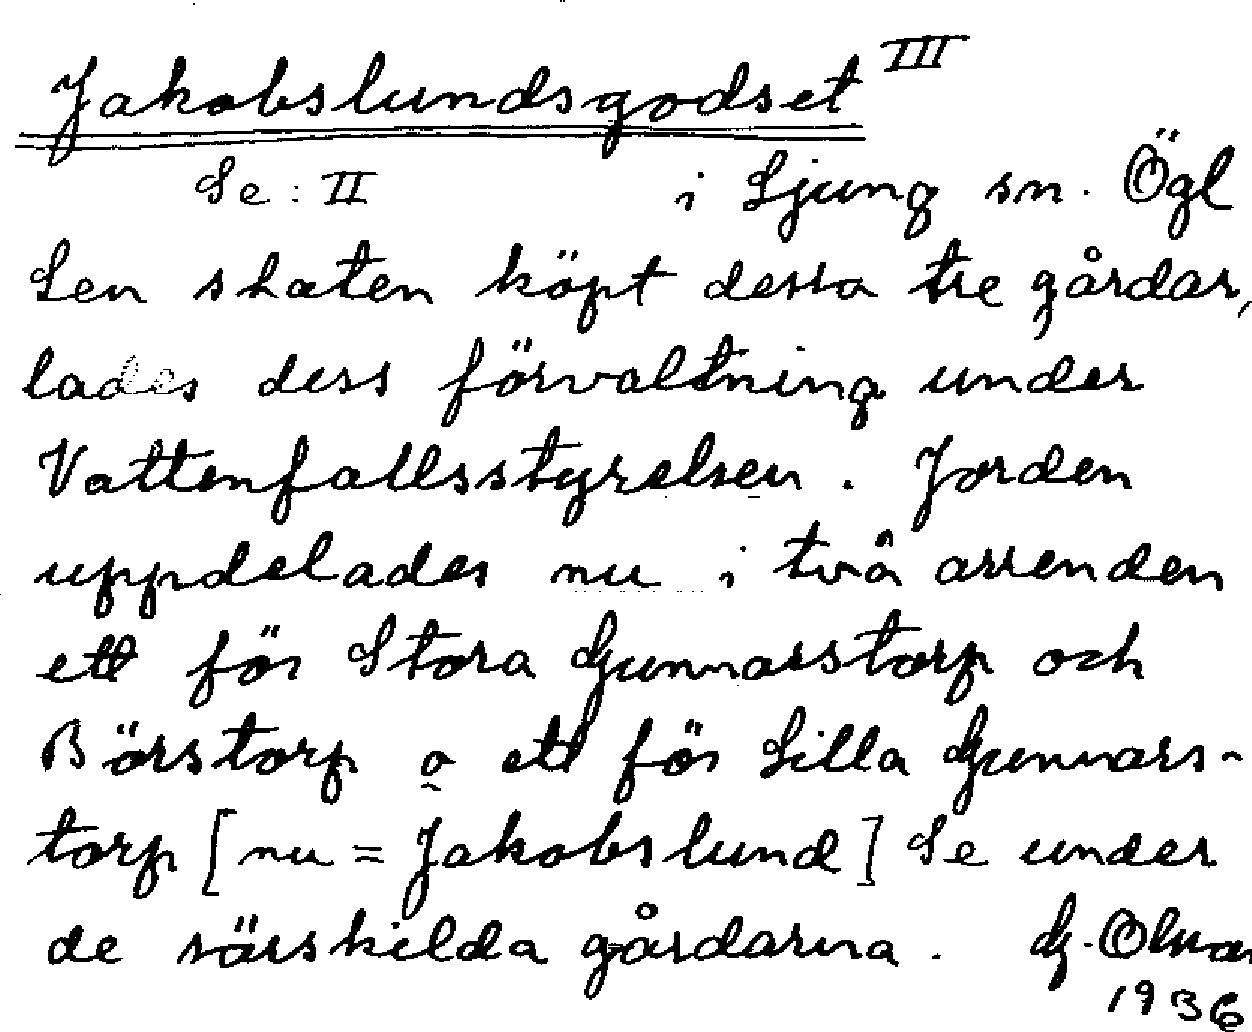 Jakobslundsgodset III
Se: II i Ljung sn. Ögl
Sen staten köpt dessa tre gårdar,
lades dess förvaltning under
Vattenfallsstyrelsen. Jorden
uppdelades nu i två arrenden
ett för Stora Gunnarstorp och
Börstorp o ett för Lilla Gunnars-
torp [nu = Jakobslund] Se under
de särskilda gårdarna. G.
1936